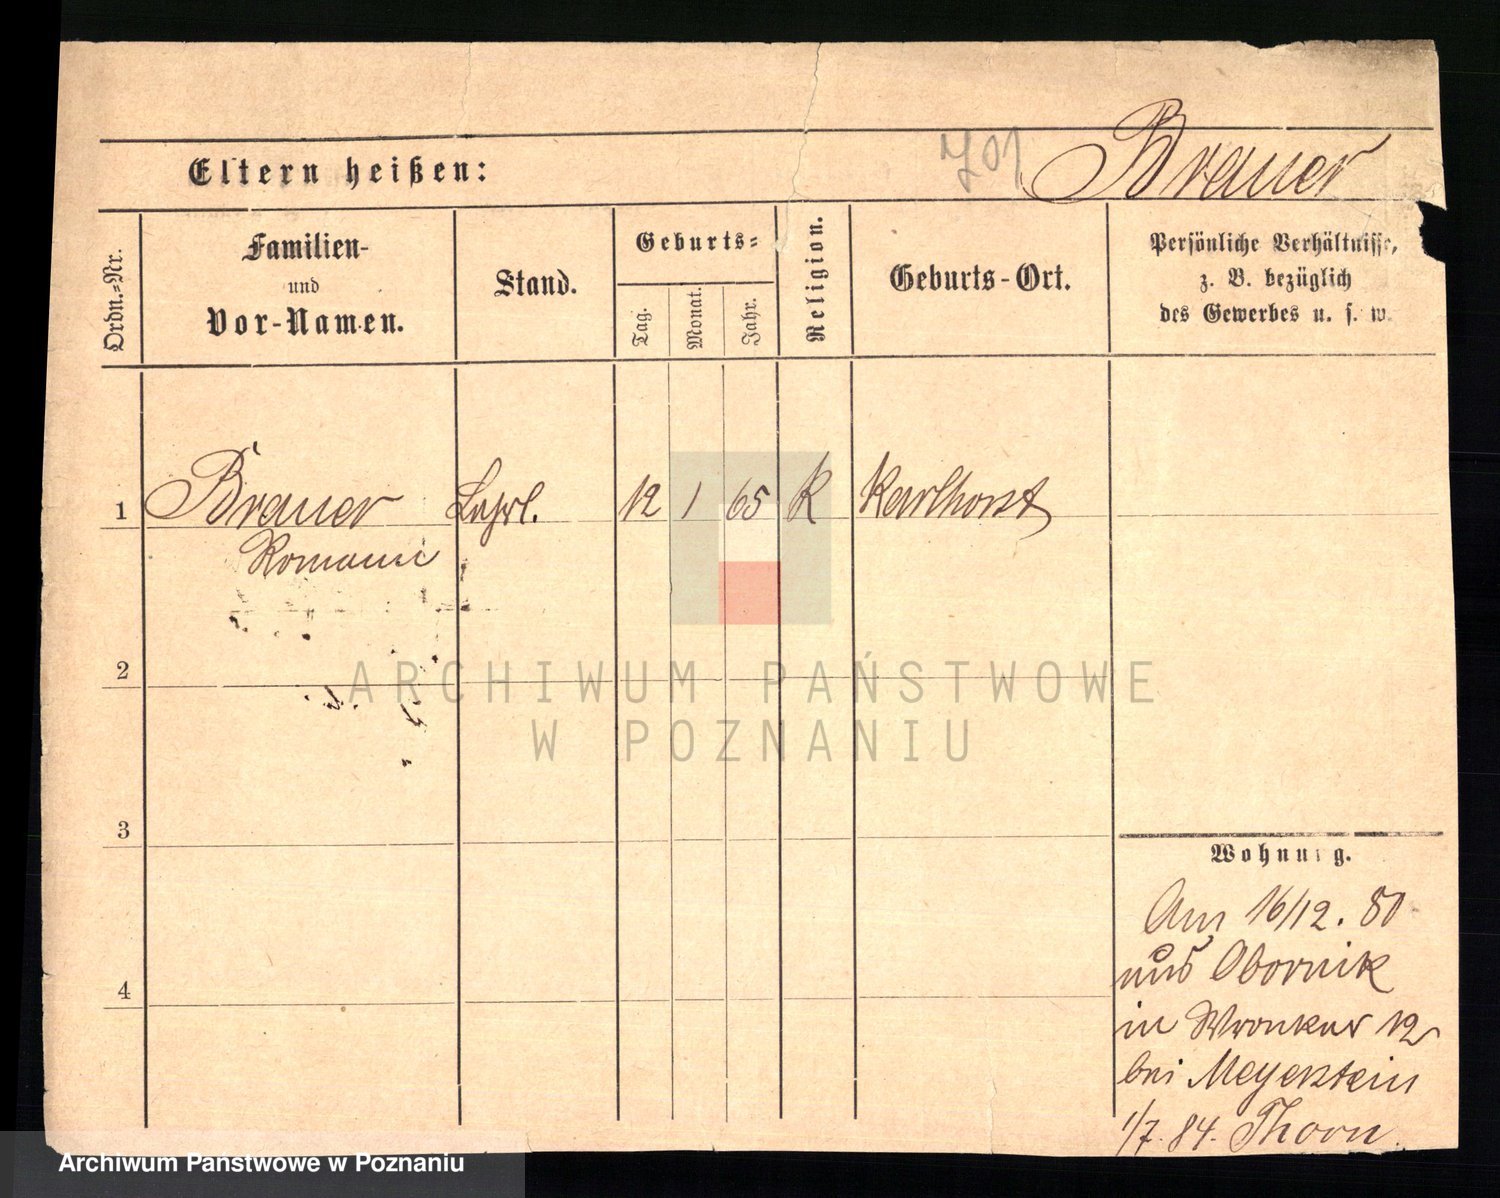 701 Brauer
Eltern heißen:
Ordn.=Nr.
Familien-
und
Vor-Namen.
Stand.
Geburts=
Tag.
Monat.
Jahr.
Religion.
Geburts-Ort.
Persönliche Verhältnisse,
z. B. bezüglich
des Gewerbes u. s. w.
1 Brauer Lehrl. 12 1 65 K Karlhorst
Roman
2
3
4
Wohnung.
Am 16/12. 80
aus Obornik
in Wronker 12
bei Meyerstein
1/7. 84. Thorn.
ARCHIWUM PAŃSTWOWE
W POZNANIU
Archiwum Państwowe w Poznaniu